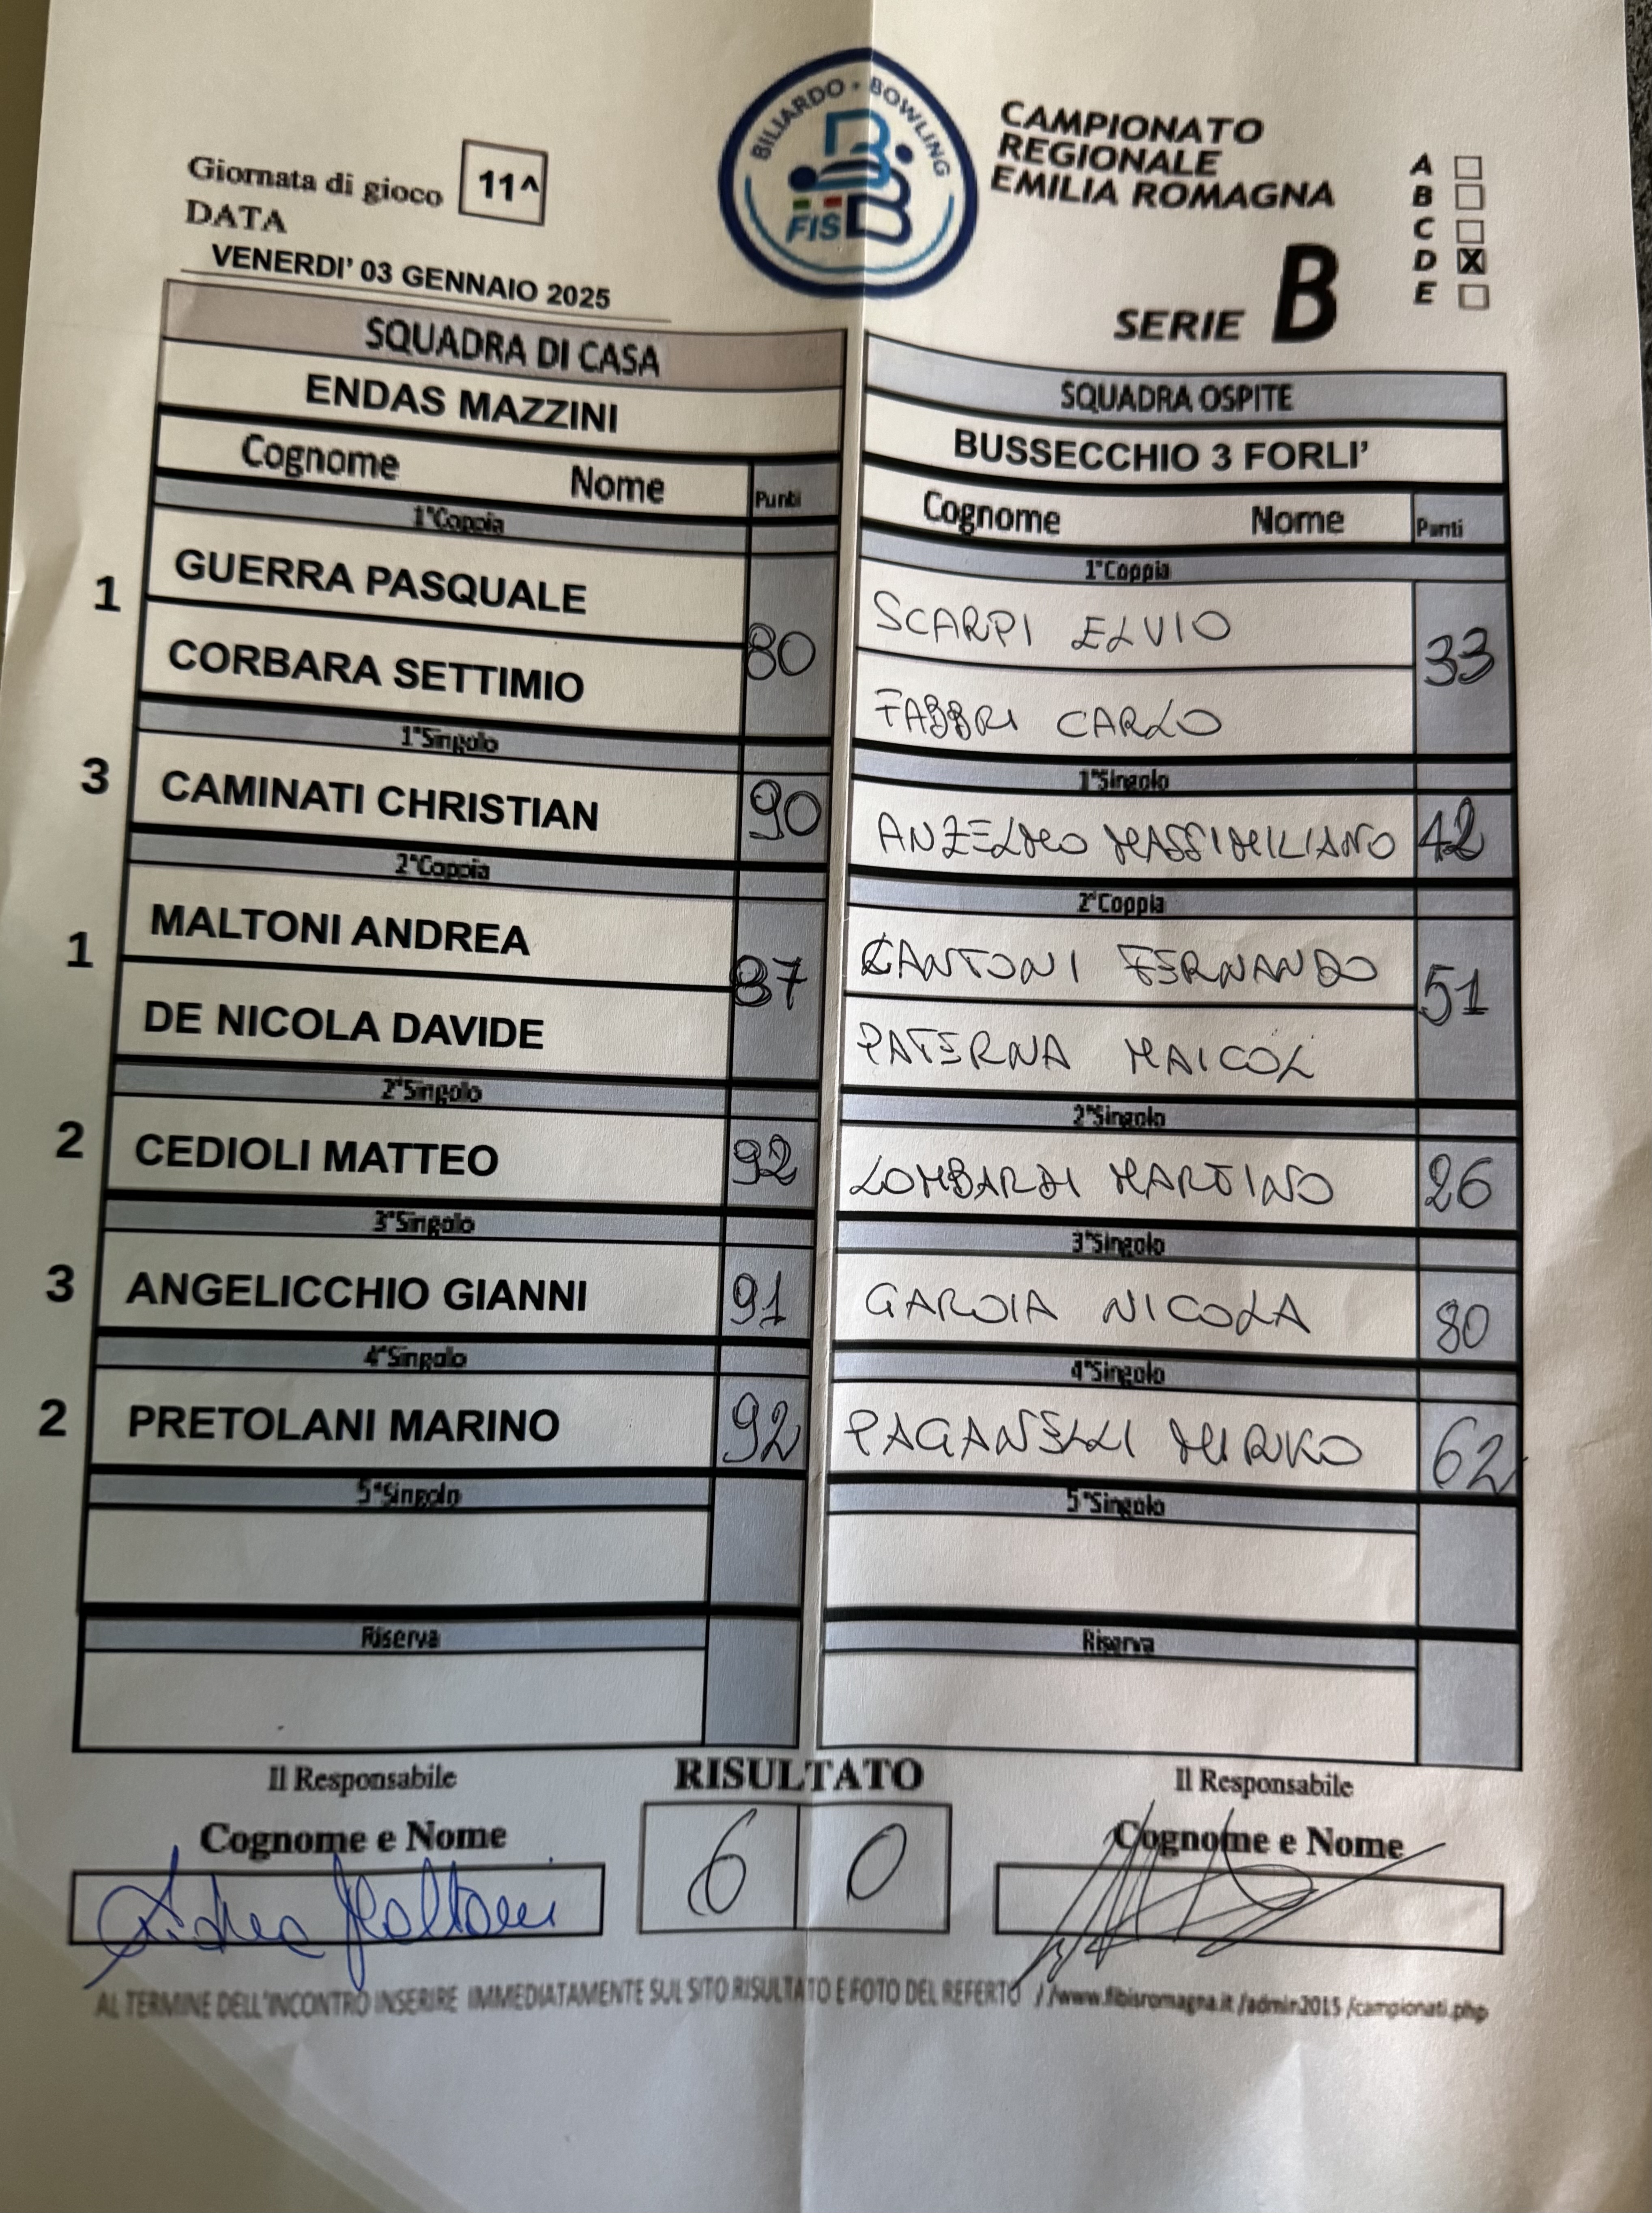 BILIARDO - BOWLING
FISBB
CAMPIONATO
REGIONALE
EMILIA ROMAGNA
SERIE B
A
B
C
D X
E
Giornata di gioco 11^
DATA
VENERDI' 03 GENNAIO 2025
SQUADRA DI CASA
ENDAS MAZZINI
Cognome Nome Punti
1°Coppia
1 GUERRA PASQUALE
80
CORBARA SETTIMIO
1°Singolo
3 CAMINATI CHRISTIAN 90
2°Coppia
1 MALTONI ANDREA
87
DE NICOLA DAVIDE
2°Singolo
2 CEDIOLI MATTEO 92
3°Singolo
3 ANGELICCHIO GIANNI 91
4°Singolo
2 PRETOLANI MARINO 92
5°Singolo
Riserva
SQUADRA OSPITE
BUSSECCHIO 3 FORLI'
Cognome Nome Punti
1°Coppia
SCARPI ELVIO
33
FABBRI CARLO
1°Singolo
ANZELMO MASSIMILIANO 42
2°Coppia
CANTONI FERNANDO
51
PATERNA MAICOL
2°Singolo
LOMBARDI MARTINO 26
3°Singolo
GAROIA NICOLA 80
4°Singolo
PAGANELLI MIRKO 62
5°Singolo
Riserva
Il Responsabile
Cognome e Nome
Andrea Maltoni
RISULTATO
6 0
Il Responsabile
Cognome e Nome
AL TERMINE DELL'INCONTRO INSERIRE IMMEDIATAMENTE SUL SITO RISULTATO E FOTO DEL REFERTO //www.fibisromagna.it/admin2015/campionati.php